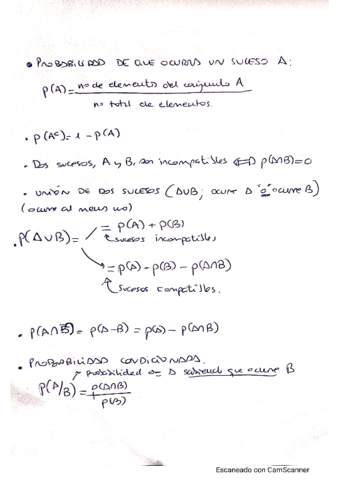 • PROBABILIDAD DE QUE OCURRA UN SUCESO A:
p(A) = no de elementos del conjunto A
no total de elementos.
• p(Aᶜ) = 1 - p(A)
• Dos sucesos, A y B, son incompatibles ⟺ p(A∩B)=0
• UNIÓN DE DOS SUCESOS (A∪B; ocurre A "o" ocurre B)
(ocurre al menos uno)
= p(A) + p(B)
• P(A∪B) =
sucesos incompatibles
= p(A) + p(B) - p(A∩B)
sucesos compatibles.
• p(A∩B̅) = p(A-B) = p(A) - p(A∩B)
• PROBABILIDAD CONDICIONADA.
probabilidad de A sabiendo que ocurre B
p(A/B) = p(A∩B)
p(B)
Escaneado con CamScanner